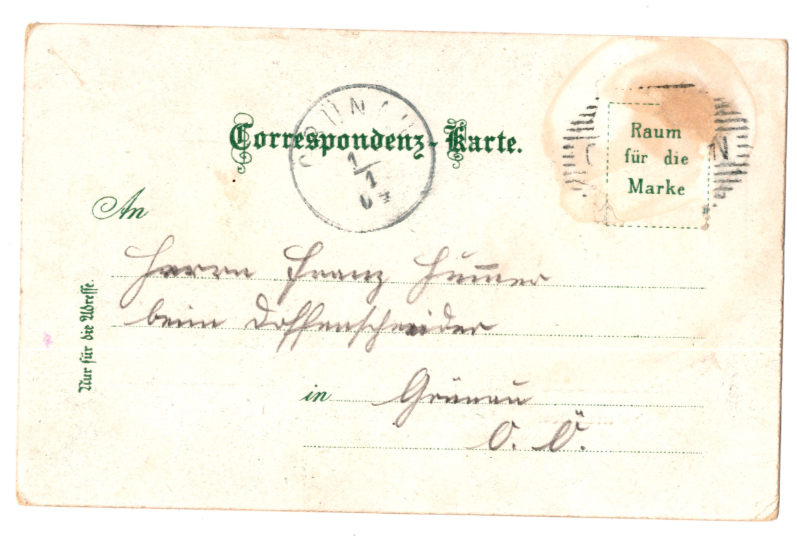 Correspondenz-Karte.
GRÜNAU
1/1
04
Raum
für die
Marke
An
Herrn Franz Hummer
beim
in Grünau
O. Ö.
Nur für die Adresse.